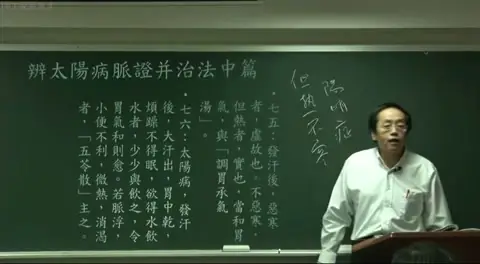 辨太陽病脈證并治法中篇
•七五：發汗後，惡寒
者，虛故也。不惡寒，
但熱者，實也，當和胃
氣，與「調胃承氣
湯」。
•七六：太陽病，發汗
後，大汗出，胃中乾，
煩躁不得眠，欲得水飲
水者，少少與飲之，令
胃氣和則愈。若脈浮，
小便不利，微熱，消渴
者，「五苓散」主之。
陽明症
但熱不寒